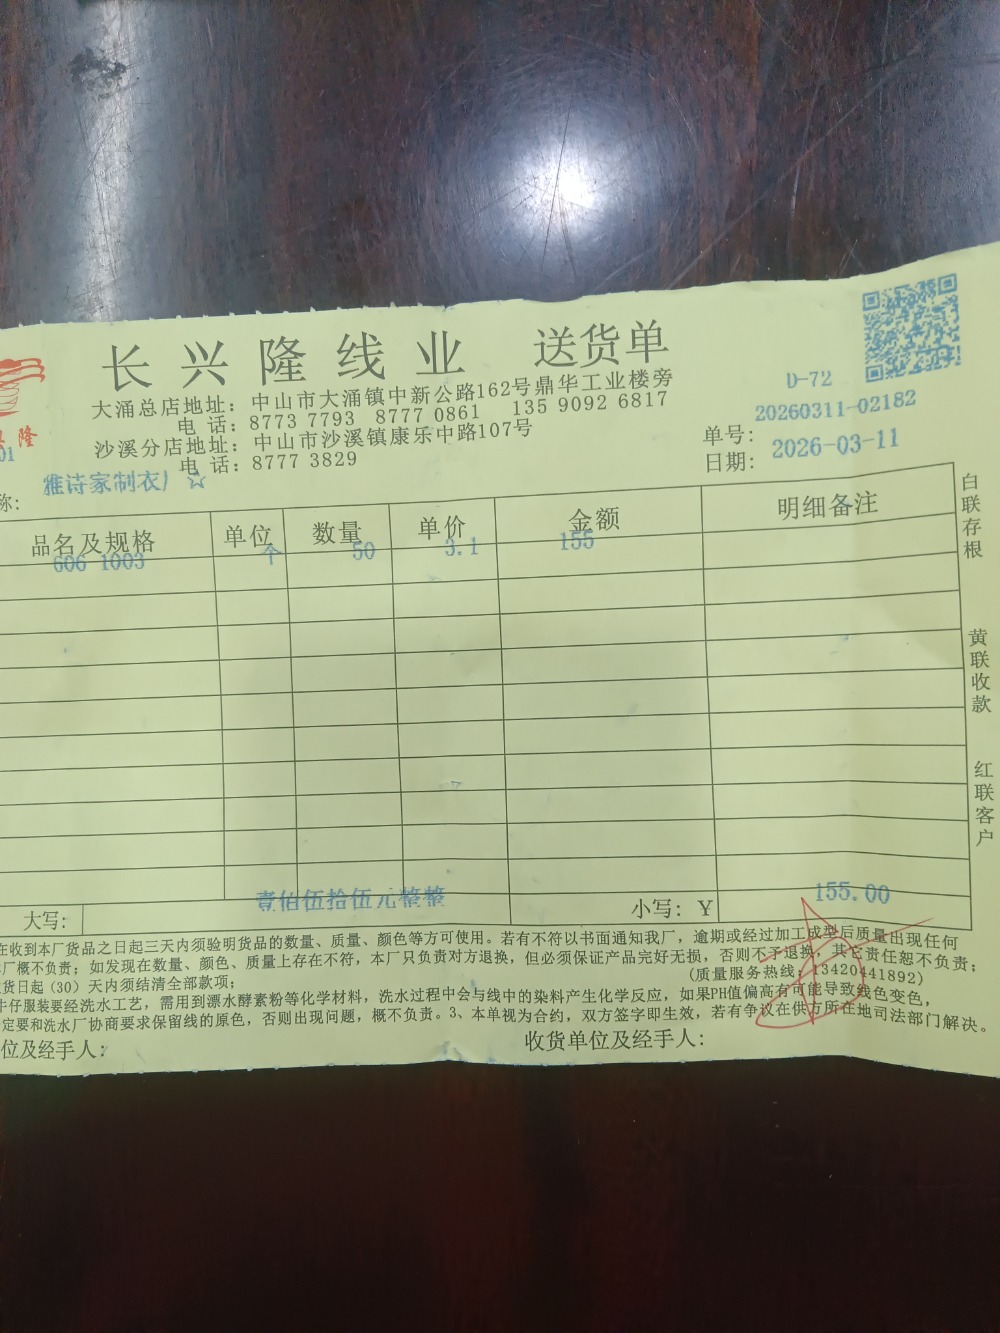 长兴隆线业 送货单
大涌总店地址：中山市大涌镇中新公路162号鼎华工业楼旁
电 话：8773 7793 8777 0861 135 9092 6817
沙溪分店地址：中山市沙溪镇康乐中路107号
电 话：8777 3829
隆
01
D-72
单号：20260311-02182
日期：2026-03-11
称：雅诗家制衣厂☆
品名及规格 单位 数量 单价 金额 明细备注
606 1003 个 50 3.1 155
大写：壹佰伍拾伍元整整 小写：￥155.00
在收到本厂货品之日起三天内须验明货品的数量、质量、颜色等方可使用。若有不符以书面通知我厂，逾期或经过加工成型后质量出现任何
厂概不负责；如发现在数量、颜色、质量上存在不符，本厂只负责对方退换，但必须保证产品完好无损，否则不予退换，其它责任恕不负责；
货日起(30）天内须结清全部款项； (质量服务热线：13420441892)
牛仔服装要经洗水工艺，需用到漂水酵素粉等化学材料，洗水过程中会与线中的染料产生化学反应，如果PH值偏高有可能导致线色变色，
定要和洗水厂协商要求保留线的原色，否则出现问题，概不负责。3、本单视为合约，双方签字即生效，若有争议在供方所在地司法部门解决。
位及经手人： 收货单位及经手人：
白联存根
黄联收款
红联客户